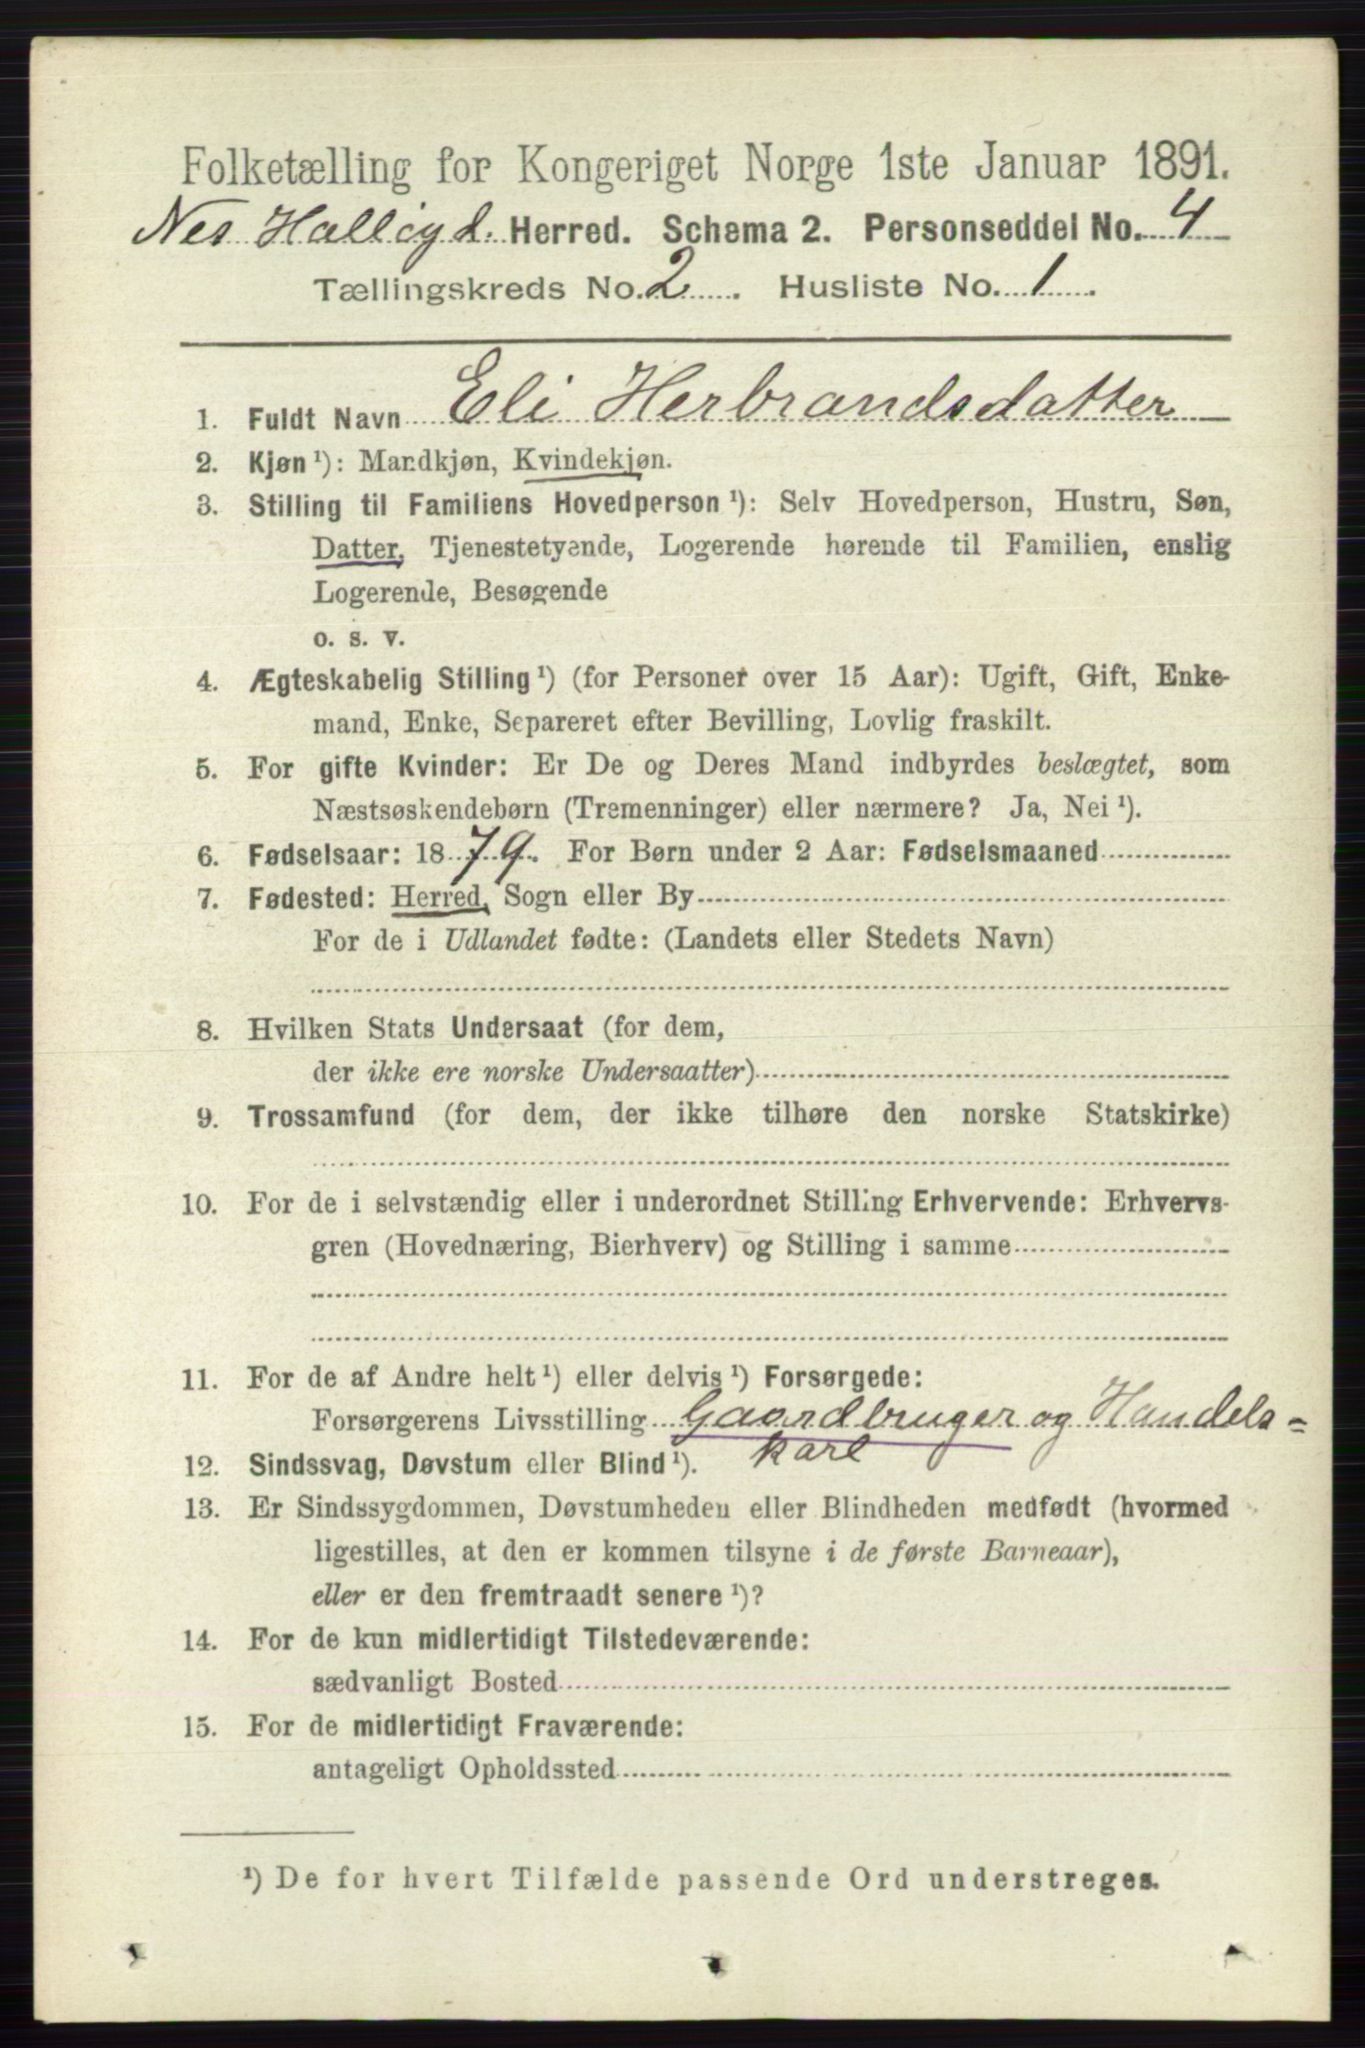 Folketælling for Kongeriget Norge 1ste Januar 1891.
Nes Halligd. Herred. Schema 2. Personseddel No. 4
Tællingskreds No. 2. Husliste No. 1.
1. Fuldt Navn Eli Herbrandsdatter
2. Kjøn ¹): Mandkjøn, Kvindekjøn.
3. Stilling til Familiens Hovedperson ¹): Selv Hovedperson, Hustru, Søn,
Datter, Tjenestetyende, Logerende hørende til Familien, enslig
Logerende, Besøgende
o. s. v.
4. Ægteskabelig Stilling ¹) (for Personer over 15 Aar): Ugift, Gift, Enke-
mand, Enke, Separeret efter Bevilling, Lovlig fraskilt.
5. For gifte Kvinder: Er De og Deres Mand indbyrdes beslægtet, som
Næstsøskendebørn (Tremenninger) eller nærmere? Ja, Nei ¹).
6. Fødselsaar: 1879. For Børn under 2 Aar: Fødselsmaaned
7. Fødested: Herred, Sogn eller By
For de i Udlandet fødte: (Landets eller Stedets Navn)
8. Hvilken Stats Undersaat (for dem,
der ikke ere norske Undersaatter)
9. Trossamfund (for dem, der ikke tilhøre den norske Statskirke)
10. For de i selvstændig eller i underordnet Stilling Erhvervende: Erhvervs-
gren (Hovednæring, Bierhverv) og Stilling i samme
11. For de af Andre helt ¹) eller delvis ¹) Forsørgede:
Forsørgerens Livsstilling Gaardbruger og Handels=
karl
12. Sindssvag, Døvstum eller Blind ¹).
13. Er Sindssygdommen, Døvstumheden eller Blindheden medfødt (hvormed
ligestilles, at den er kommen tilsyne i de første Barneaar),
eller er den fremtraadt senere ¹)?
14. For de kun midlertidigt Tilstedeværende:
sædvanligt Bosted
15. For de midlertidigt Fraværende:
antageligt Opholdssted
¹) De for hvert Tilfælde passende Ord understreges.